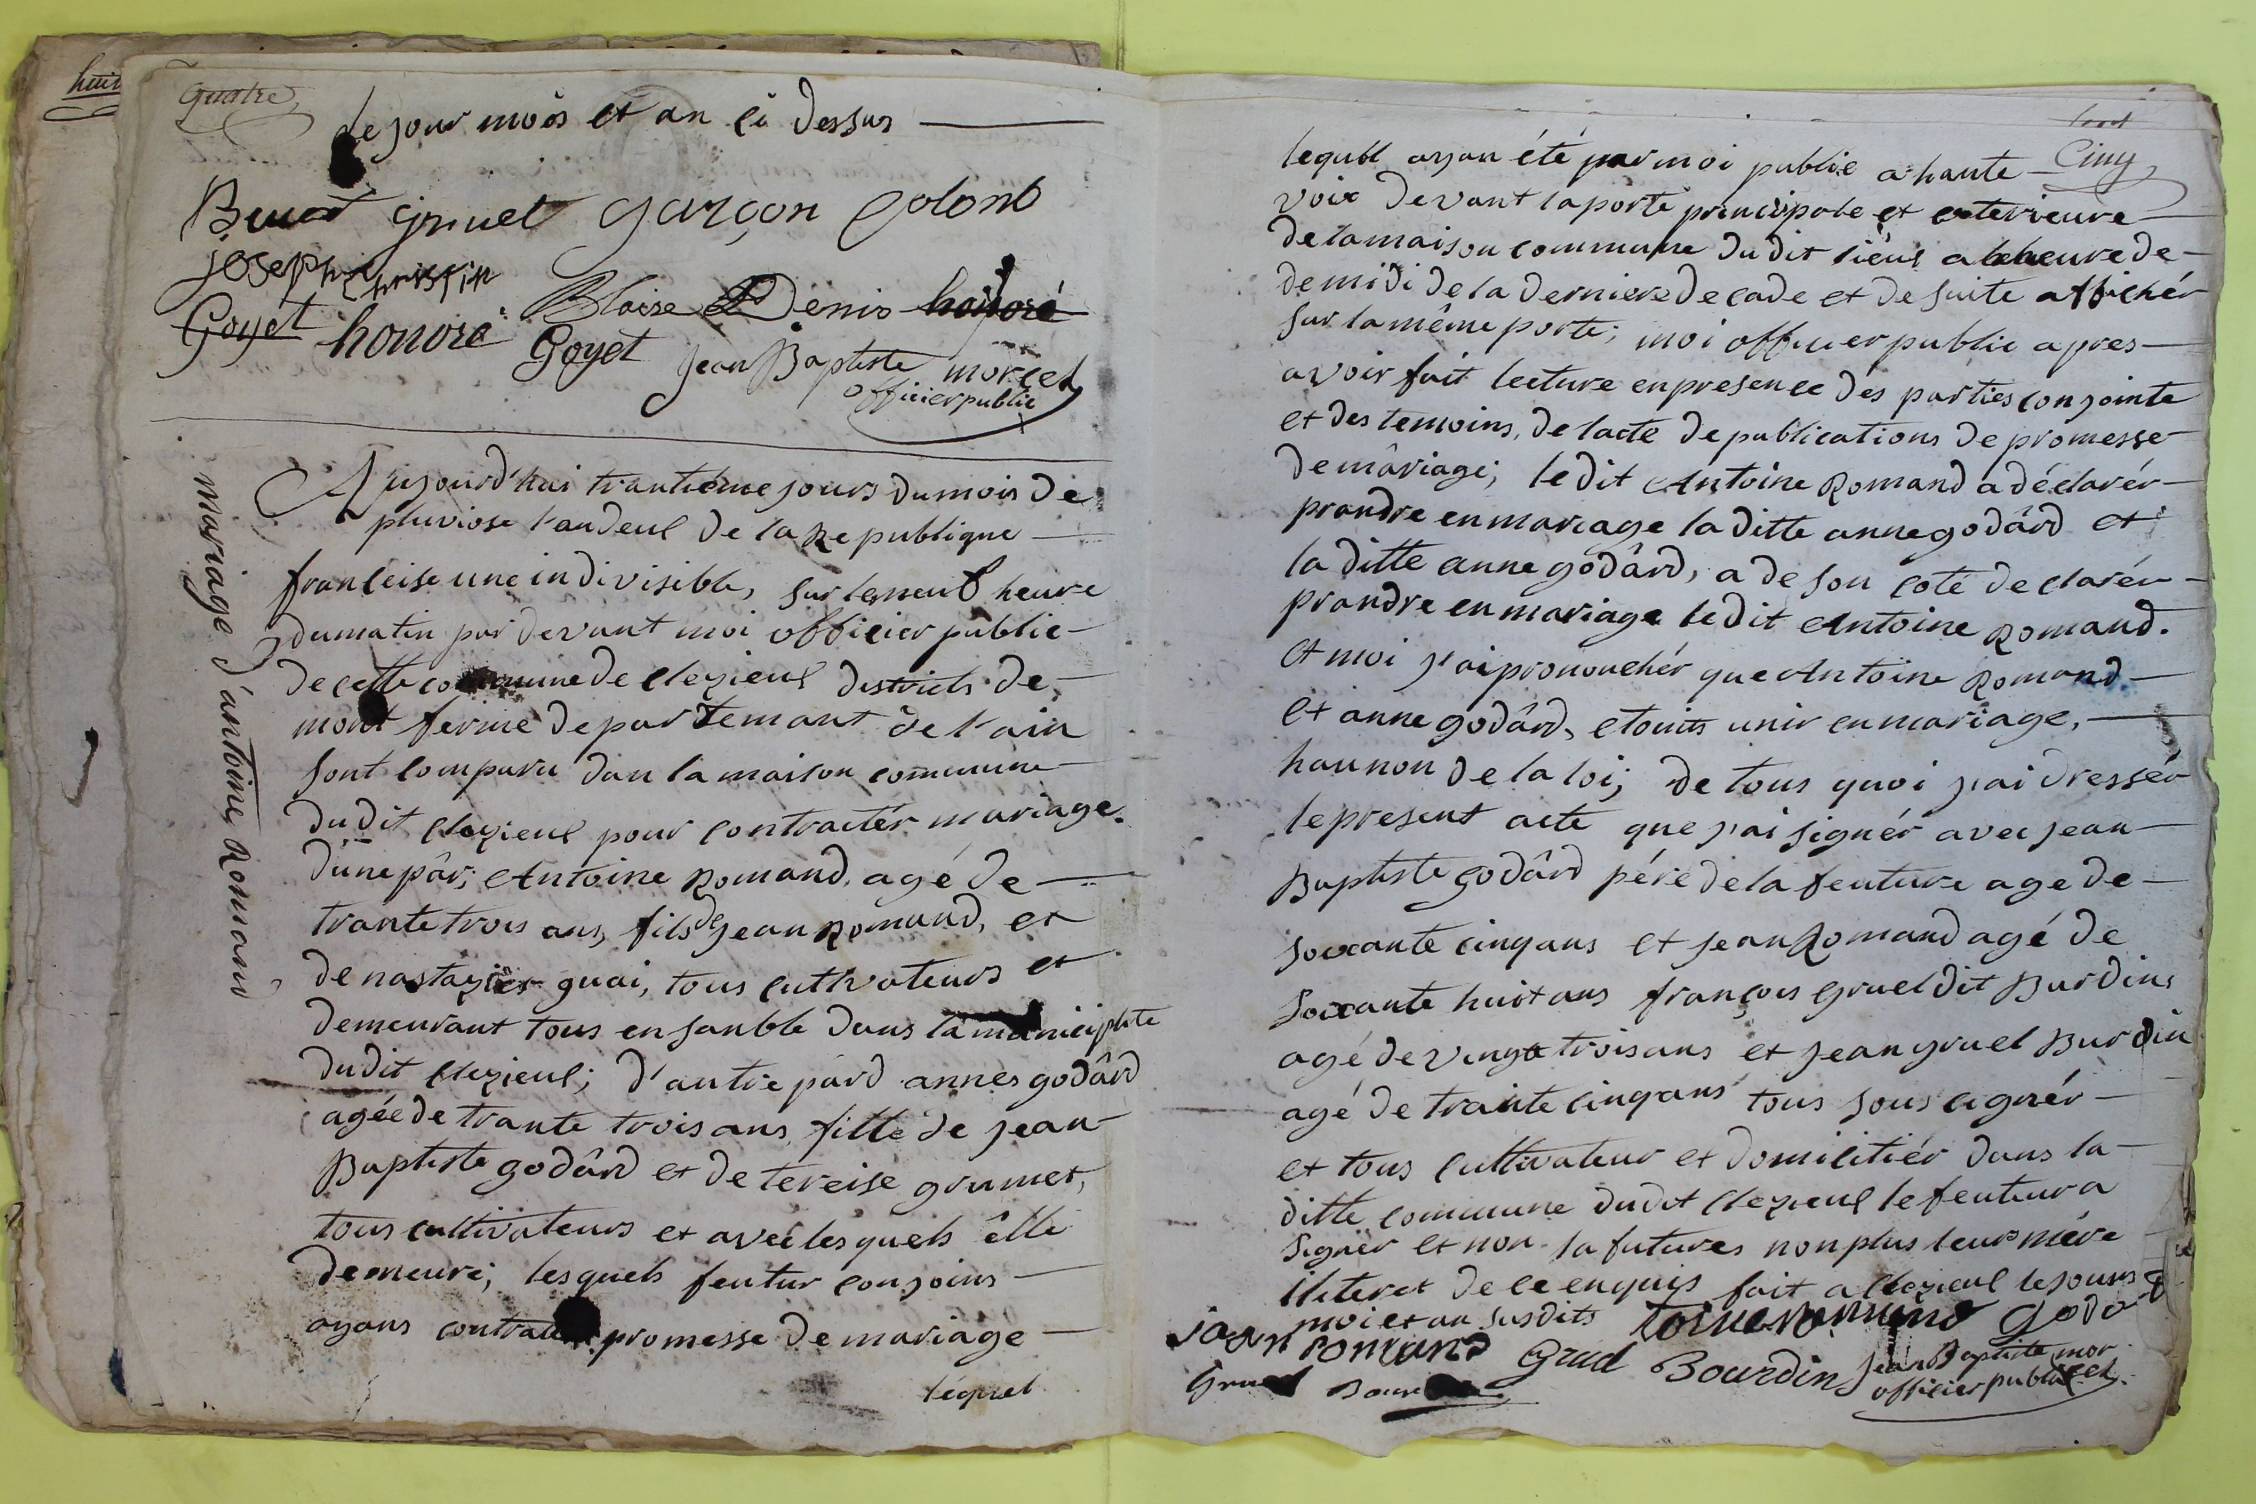 quatre
le jour mois et an ci dessus
gruel garçon Colomb
joseph
Goyet honoré Blaise Denis honoré
Goyet jean Baptiste morcel
officier public
mariage d'antoine Romand
Aujourd'hui trantiéme jours du mois de
pluviose l'an deul de la Republique
françeise une indivisible, sur leneuf heure
dumatin par devant moi officier public
de cette commune de clezieul districts de
mont ferme departemant de l'ain
sont comparu dan la maison commune
du dit clezieul pour contractér mariage.
d'une pâr; Antoine Romand, agé de
trante trois ans, fils de jean Romand, et
de nastazier guai, tous cultivateurs et
demeurant tous ensanble dans la municiplite
du dit clezieul; d'autre pård annes godârd
agée de trante trois ans fille de jean
Baptiste godârd et de tereise grumet,
tous cultivateurs et avec lesquels êlle
demeure; lesquels feutur conjoins
ayans contracté promesse de mariage
léquel
Cinq
lequel ayan été par moi publié a haute
voix devant laporte principale et exterieure
delamaison commune du dit lieus a leheure de
de midi de la derniere decade et de suite affichér
sur la même porte; moi officier public apres
avoir fait lecture en presence des parties conjointe
et des temoins, de lacte de publications de promesse
de mâriage; le dit Antoine Romand a déclarér
prandre en mariage la ditte anne godârd et
la ditte anne godârd, a de son coté declarér
prandre en mariage ledit Antoine Romand.
et moi j'ai pronouchér que Antoine Romand
et anne godârd, etoints unir en mariage,
hau non de la loi; de tous quoi j'ai dressér
le present acte que j'ai signér avec jean
Baptiste godârd pére de la feuture age de
soixante cinq ans et jean Romand agé de
soixante huit ans françois gruel dit Burdin
agé de vingt trois ans et jean gruel Burdin
agé de trante cinq ans tous sous cignér
et tous cultivateur et domicitiér dans la
ditte commune dudit clezieul le feutur a
signer et non la futures non plus leurs mére
iliteret de ce enquis fait a clezieul le jours
moi et an susdits toine romand godard
jean romand Gruel Bourdin jean Baptiste morcel
Gruel officier public